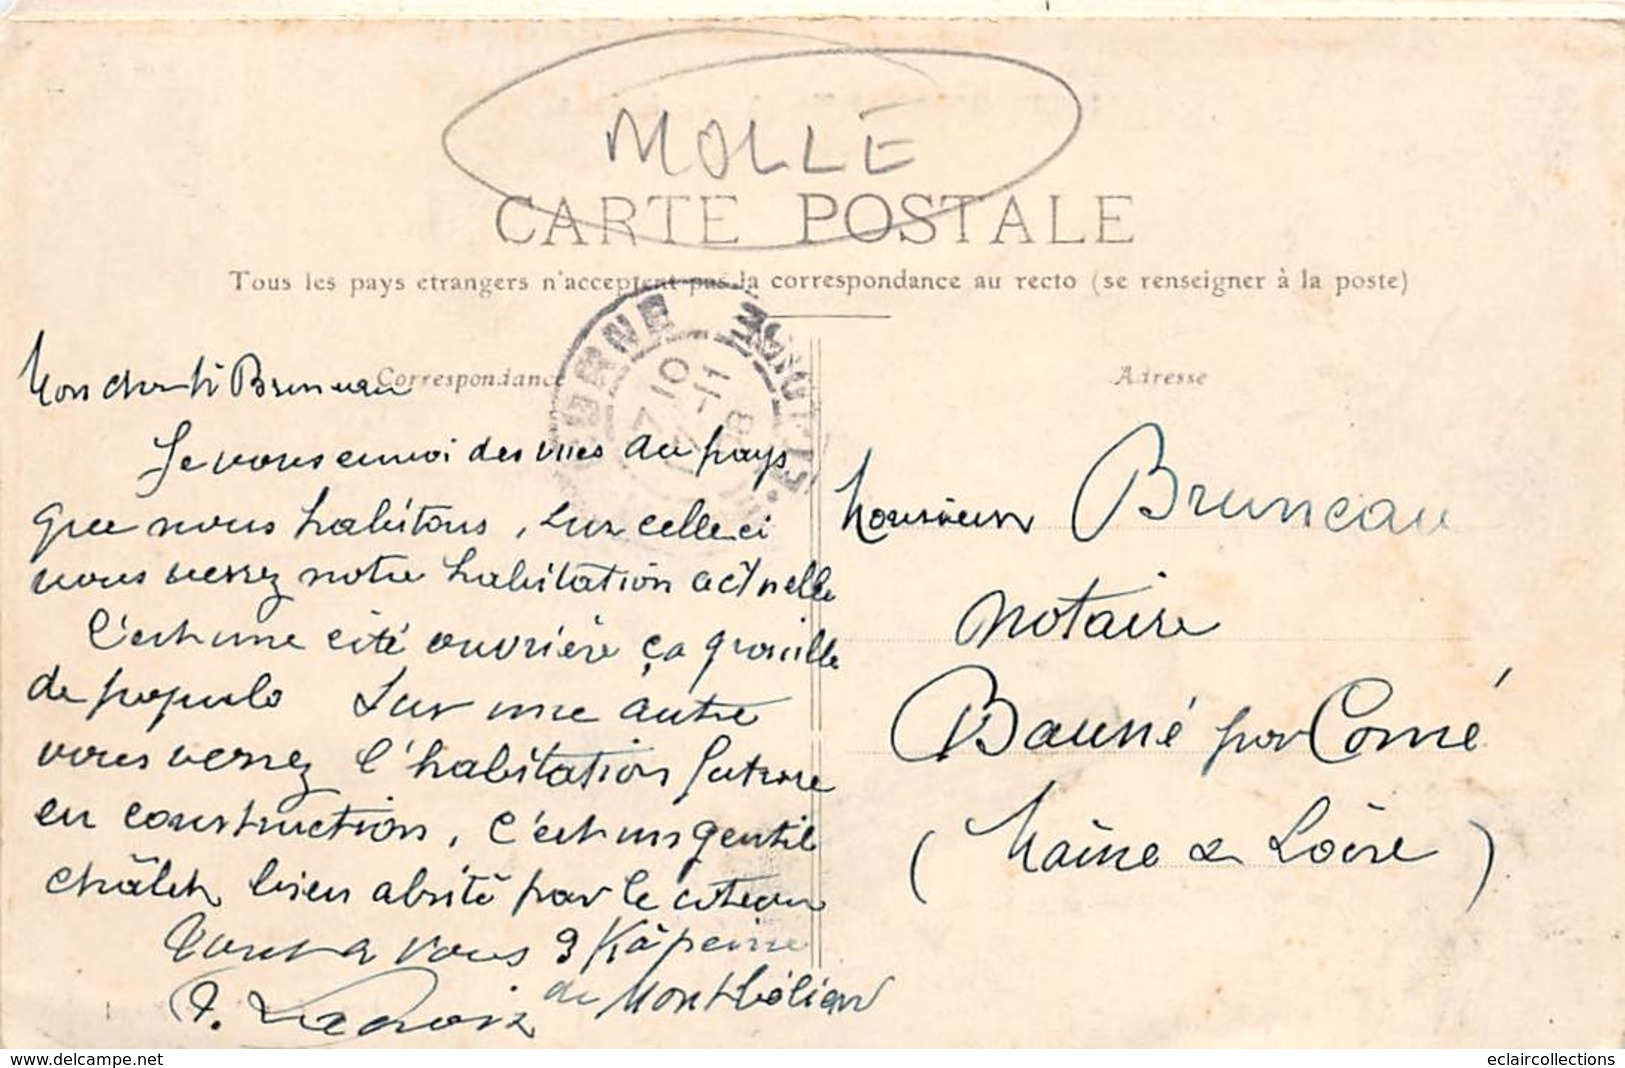 MOLLE
CARTE POSTALE
Tous les pays étrangers n'acceptent pas la correspondance au recto (se renseigner à la poste)
Correspondance
Adresse
Mon cher Bruneau
Je vous envoi des vues du pays
que nous habitons, sur celle ci
vous verrez notre habitation actuelle
C'est une cité ouvrière ça grouille
de populo Sur une autre
vous verrez l'habitation future
en construction, c'est un gentil
châlet bien abrité par le coteau
Tout à vous 3 K à peine
de Montbéliard
Lacroix
Monsieur Bruneau
Notaire
Bauné par Corné
(Maine & Loire)
delcampe.net
eclaircollections